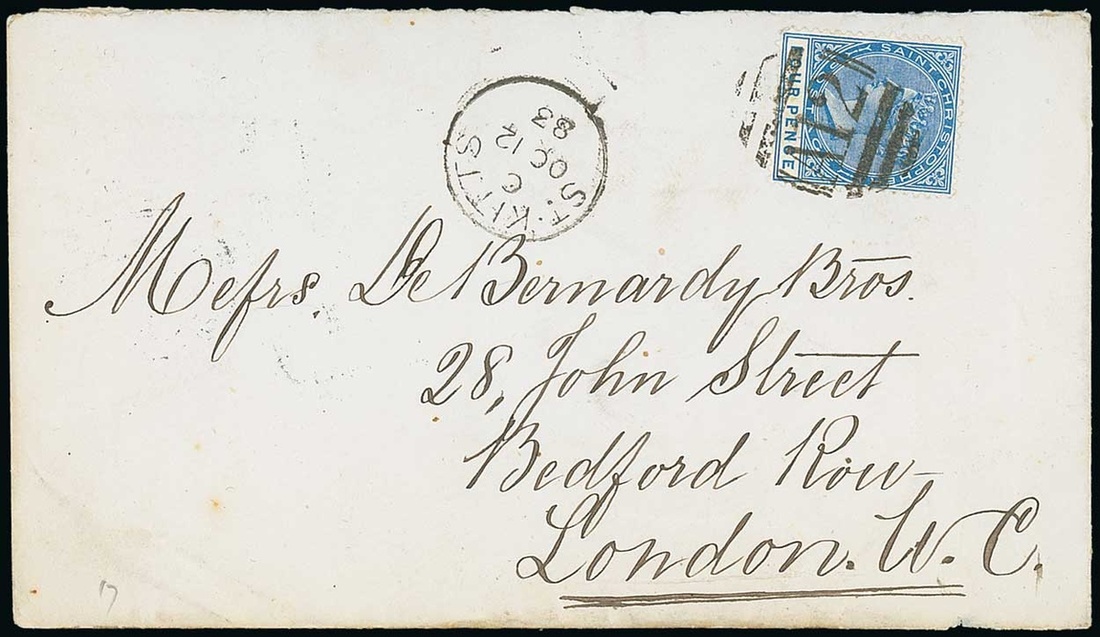 SAINT CHRISTOPHER
FOUR PENCE
A12
ST. KITTS
C
OC 12
83
Mefsrs. De Bernardy Bros.
28, John Street
Bedford Row
London. W. C.
17